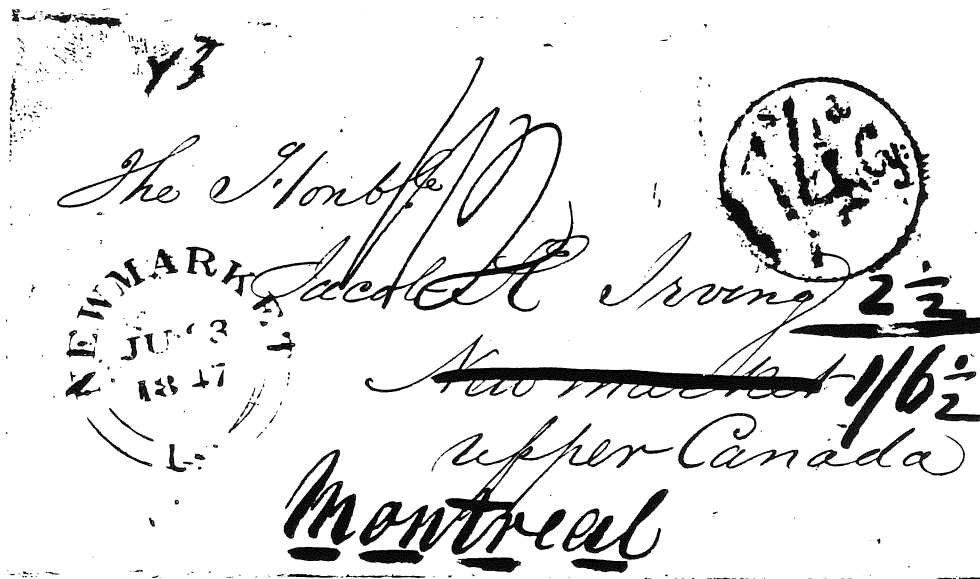 Y3
The Honble
Jacob Æ Irving
2 1/2
Newmarket
1/6 1/2
upper Canada
Montreal
NEWMARKET
1847